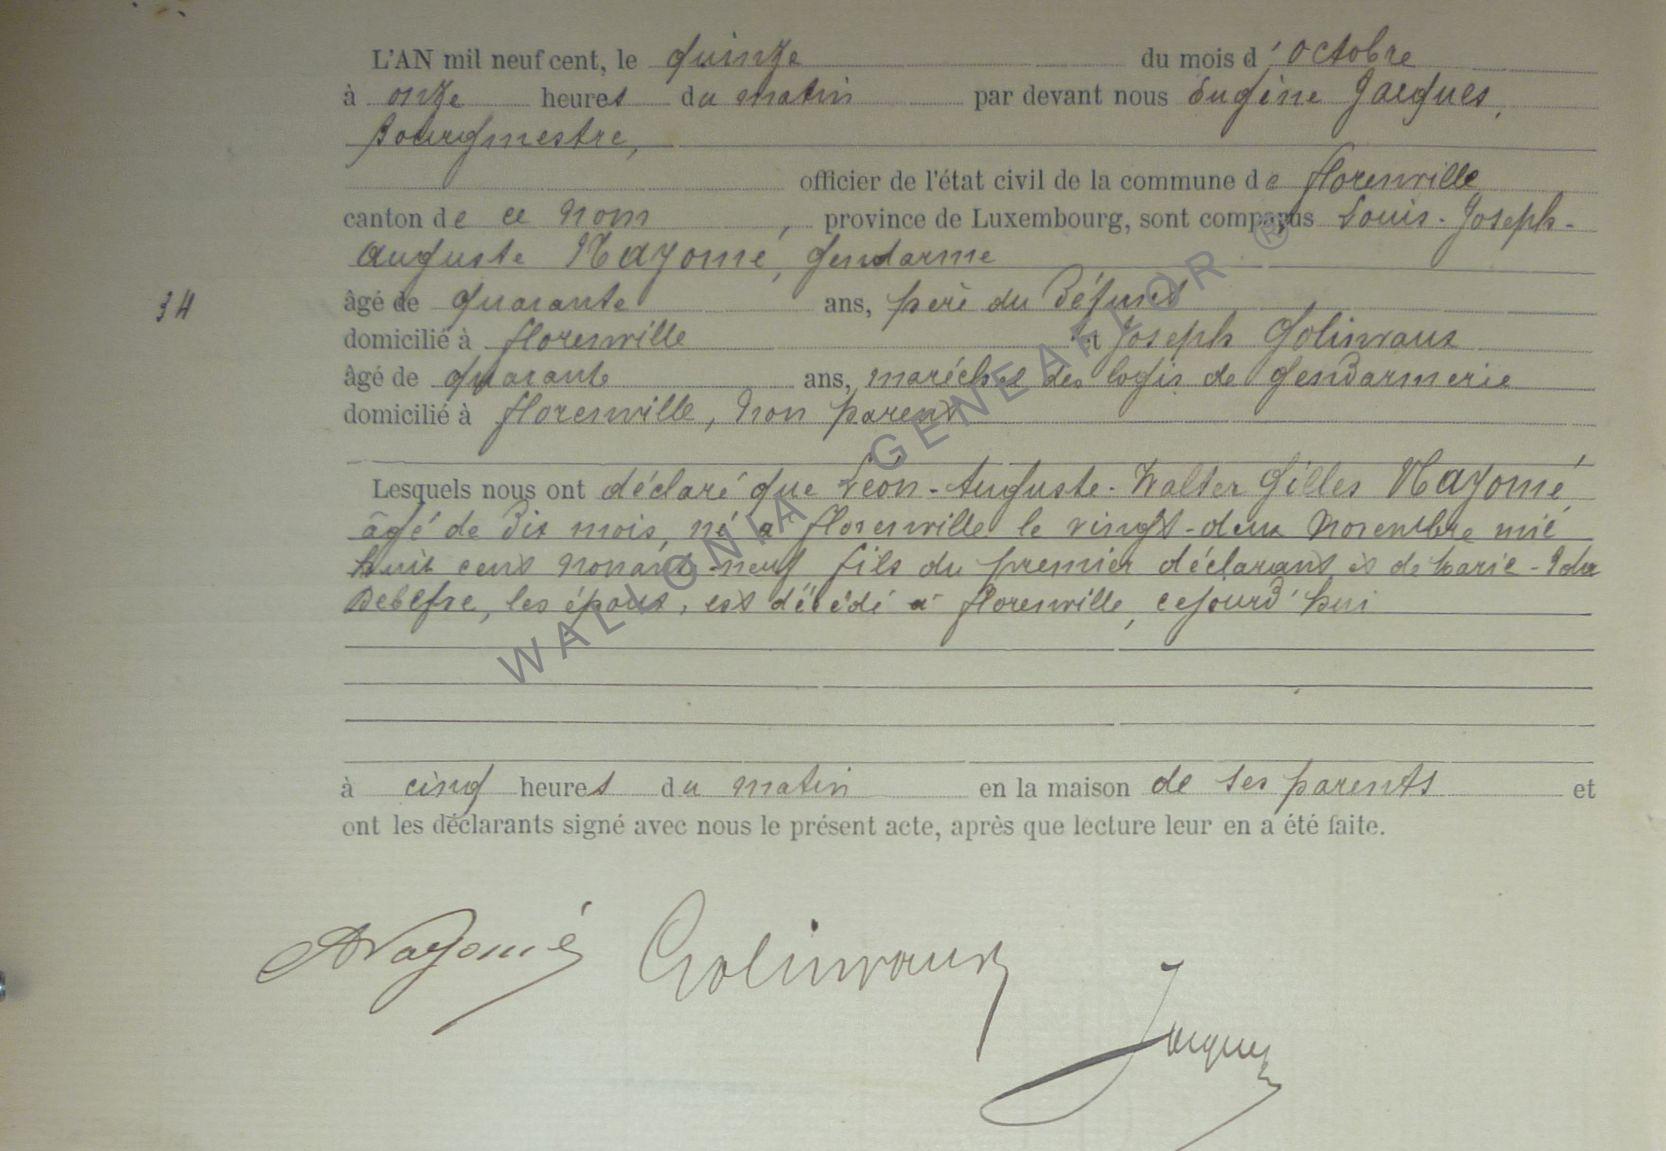 L'AN mil neuf cent, le quinze du mois d'octobre
à onze heures du matin par devant nous Eugène Jacques,
Bourgmestre,
officier de l'état civil de la commune de florenville
canton de ce nom, province de Luxembourg, sont comparus Louis-Joseph-
Auguste Nayomé, gendarme
34
âgé de quarante ans, père du défunt
domicilié à florenville et Joseph Golinvaux
âgé de quarante ans, maréchal des logis de gendarmerie
domicilié à florenville, non parent
Lesquels nous ont déclaré que Léon-Auguste-Walter Gilles Nayomé
âgé de dix mois, né à florenville le vingt-deux novembre mil
huit cent nonante-neuf fils du premier déclarant et de Marie-Ida
les époux, est décédé à florenville, cejourd'hui
à cinq heures du matin en la maison de ses parents et
ont les déclarants signé avec nous le présent acte, après que lecture leur en a été faite.
Nayomé Golinvaux
Jacques
WALLONIA GENEAFLOR ®